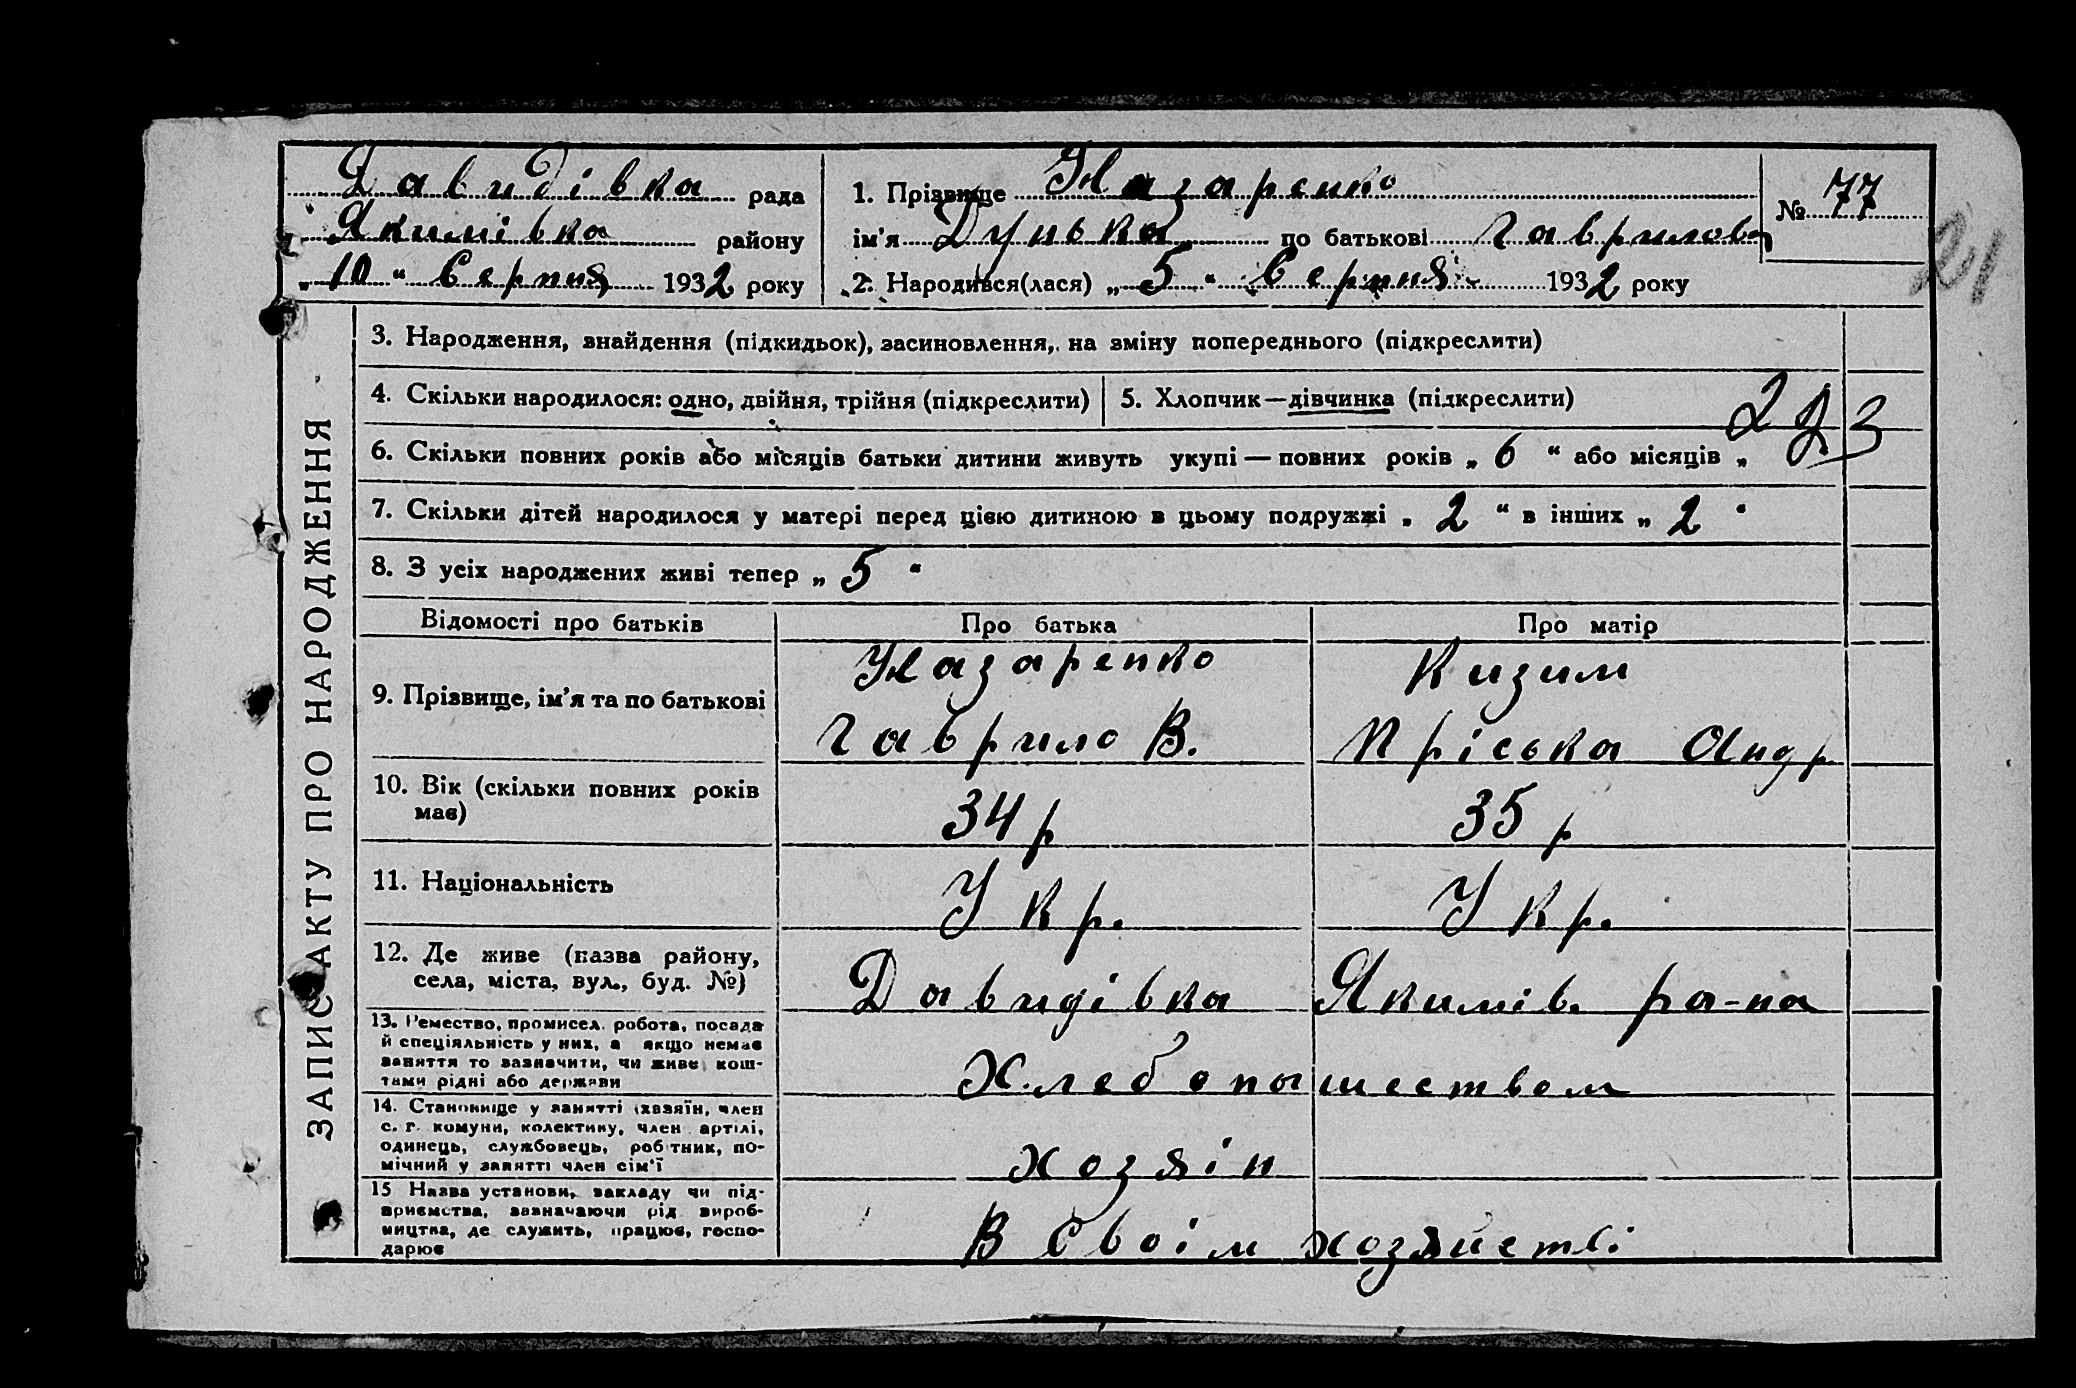 Давидівка рада
Якимівка району
„ 10 “ Серпня 1932 року
1. Прізвище Назаренко
ім’я Дунька по батькові Гаврилова
2. Народився(лася) „ 5 “ Серпня 1932 року
№ 77
21
ЗАПИС АКТУ ПРО НАРОДЖЕННЯ
3. Народження, знайдення (підкидьок), засиновлення, на зміну попереднього (підкреслити)
4. Скільки народилося: одно, двійня, трійня (підкреслити)
5. Хлопчик—дівчинка (підкреслити)
6. Скільки повних років або місяців батьки дитини живуть укупі — повних років „ 6 “ або місяців „
7. Скільки дітей народилося у матері перед цією дитиною в цьому подружжі „ 2 “ в інших „ 2 “
8. З усіх народжених живі тепер „ 5 “
Відомості про батьків Про батька Про матір
9. Прізвище, ім’я та по батькові
Назаренко Кизим
Гаврило В. Пріська Андр
10. Вік (скільки повних років
має)
34 р 35 р
11. Національність Укр. Укр.
12. Де живе (назва району,
села, міста, вул., буд. №)
Давидівка Якимів. ра-на
13. Ремество, промисел, робота, посада
й спеціяльність у них, а якщо немає
заняття то зазначити, чи живе кош-
тами рідні або держави
Хлебопашеством
14. Становище у занятті (хазяїн, член
с. г. комуни, колективу, член артілі,
одинець, службовець, робітник, по-
мічний у занятті член сім’ї
хозяін
15 Назва установи, закладу чи під-
приємства, зазначаючи рід вироб-
ництва, де служить, працює, госпо-
дарює
В своім хозяйстві